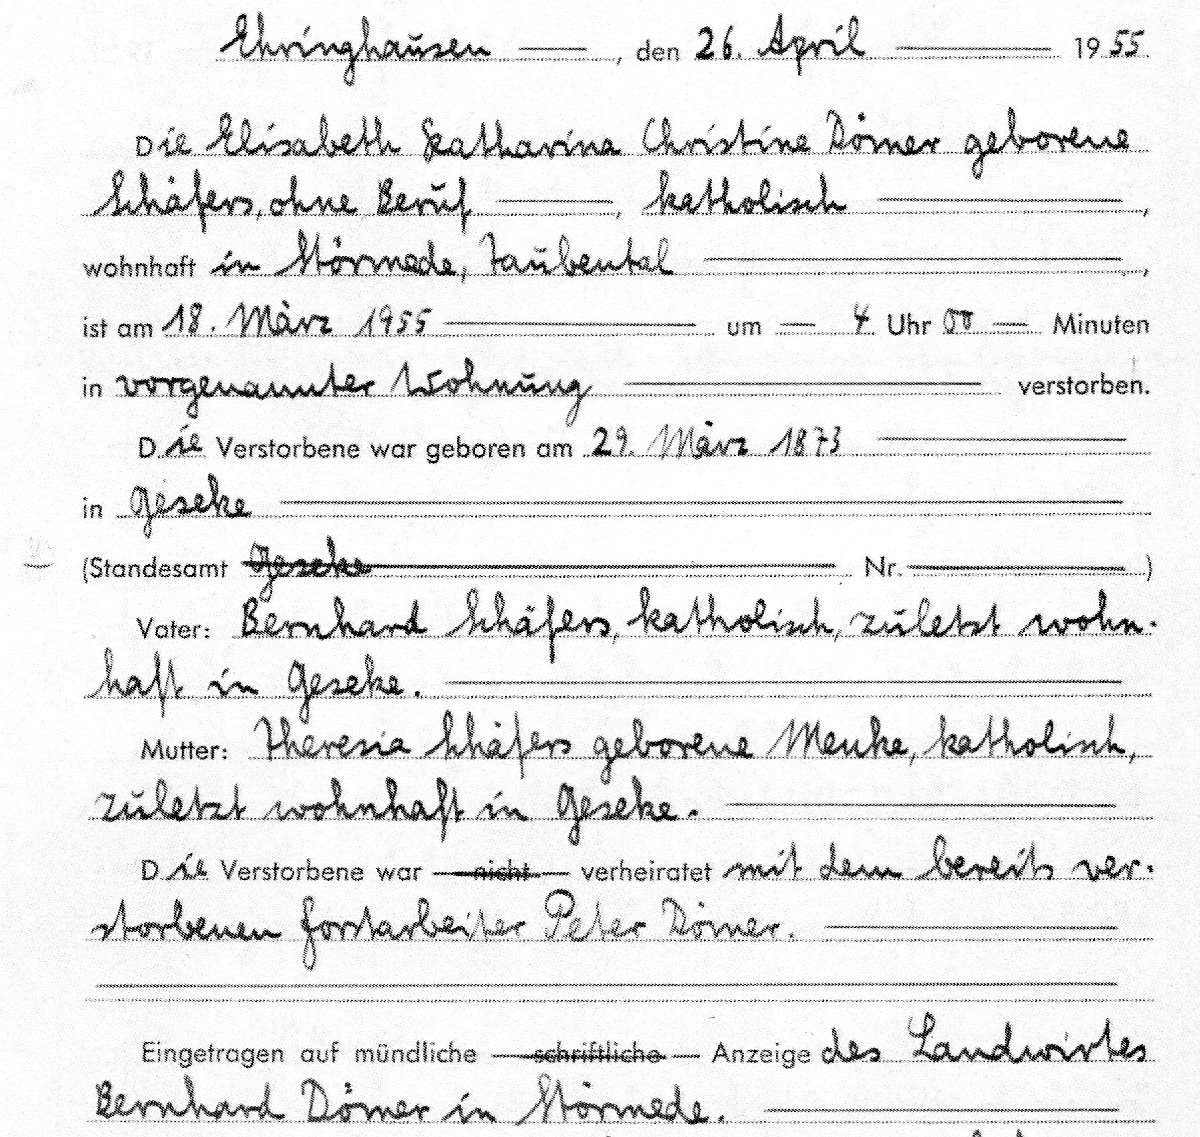 Ehringhausen , den 26. April 1955
Die Elisabeth Katharina Christine Dömer geborene
Schäfers, ohne Beruf , katholisch ,
wohnhaft in Störmede, Taubental ,
ist am 18. März 1955 um 4 Uhr 00 Minuten
in vorgenannter Wohnung verstorben.
Die Verstorbene war geboren am 29. März 1873
in Geseke
(Standesamt Geseke Nr. )
Vater: Bernhard Schäfers, katholisch, zuletzt wohn-
haft in Geseke.
Mutter: Theresia Schäfers geborene Menke, katholisch,
zuletzt wohnhaft in Geseke.
Die Verstorbene war — nicht — verheiratet mit dem bereits ver-
storbenen Forstarbeiter Peter Dömer.
Eingetragen auf mündliche — schriftliche — Anzeige des Landwirtes
Bernhard Dömer in Störmede.